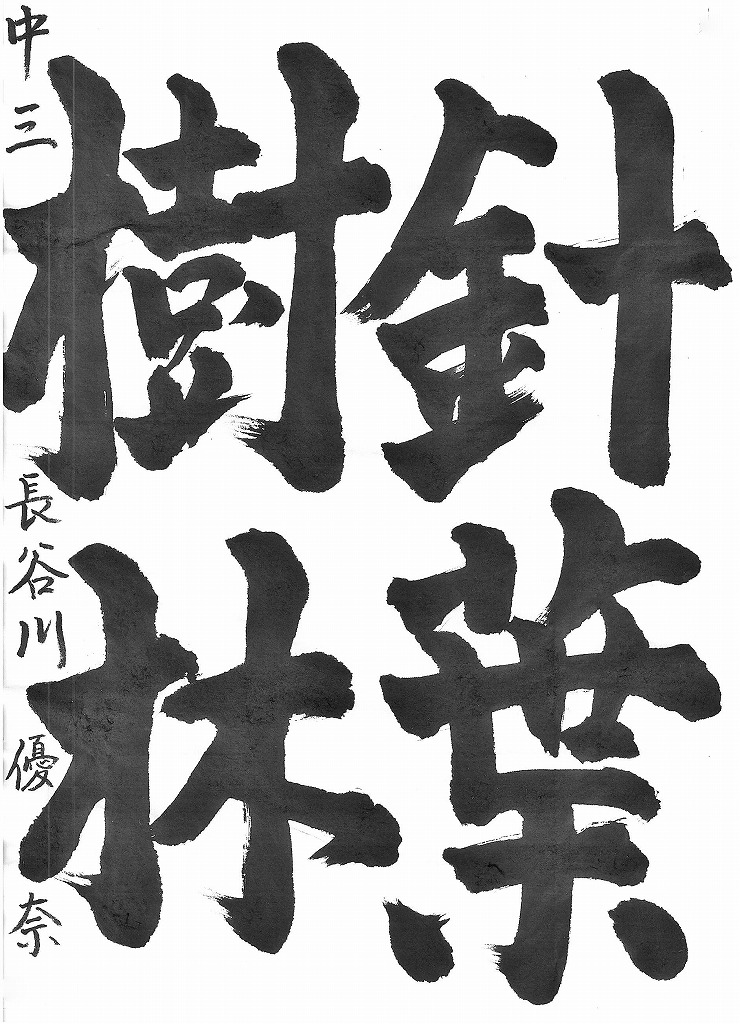 針葉
樹林
中三 長谷川 優奈